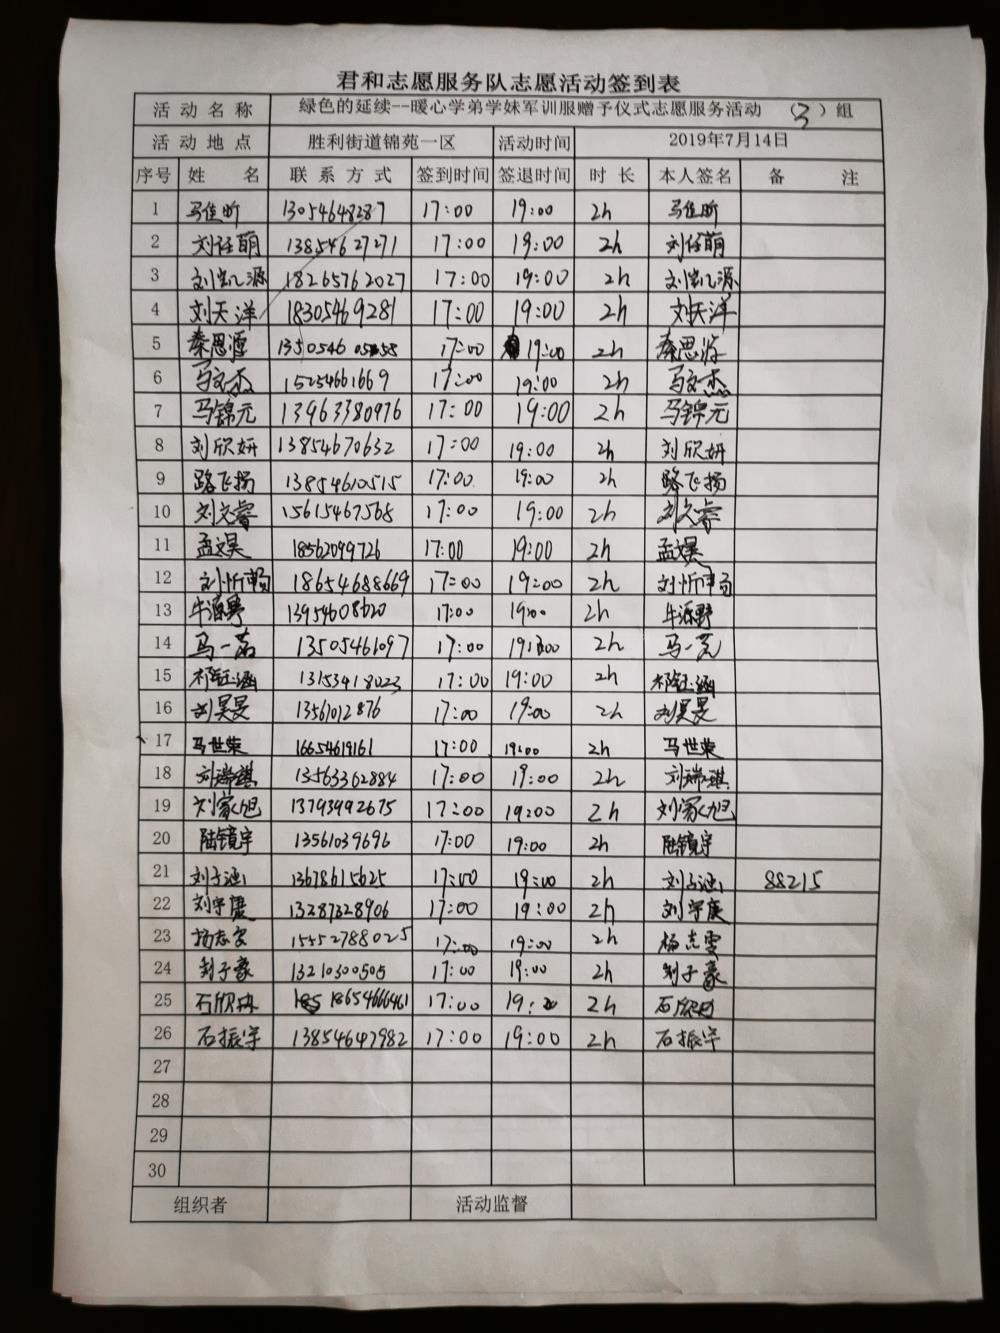 君和志愿服务队志愿活动签到表
活动名称 绿色的延续--暖心学弟学妹军训服赠予仪式志愿服务活动 （3）组
活动地点 胜利街道锦苑一区 活动时间 2019年7月14日
序号 姓名 联系方式 签到时间 签退时间 时长 本人签名 备注
1 马佳昕 13054648287 17:00 19:00 2h 马佳昕
2 刘任萌 13854627271 17:00 19:00 2h 刘任萌
3 刘凯源 18265762027 17:00 19:00 2h 刘凯源
4 刘天洋 18305469281 17:00 19:00 2h 刘天洋
5 秦思源 17:00 19:00 2h 秦思源
6 马文杰 15254661669 17:00 19:00 2h 马文杰
7 马锦元 13963380976 17:00 19:00 2h 马锦元
8 刘欣妍 13854670632 17:00 19:00 2h 刘欣妍
9 路飞扬 13854610515 17:00 19:00 2h 路飞扬
10 刘文睿 15615467568 17:00 19:00 2h 刘文睿
11 孟昊 18562099726 17:00 19:00 2h 孟昊
12 刘忻畅 18654688669 17:00 19:00 2h 刘忻畅
13 牛源野 13954608620 17:00 19:00 2h 牛源野
14 马一茗 13505461097 17:00 19:00 2h 马一茗
15 祁钰涵 13153418023 17:00 19:00 2h 祁钰涵
16 刘昊旻 13561012876 17:00 19:00 2h 刘昊旻
17 马世荣 16654619161 17:00 19:00 2h 马世荣
18 刘瑞琪 13563362884 17:00 19:00 2h 刘瑞琪
19 刘家旭 13793992675 17:00 19:00 2h 刘家旭
20 陆镜宇 13561039696 17:00 19:00 2h 陆镜宇
21 刘子涵 13678615625 17:00 19:00 2h 刘子涵 88215
22 刘宇庚 13287328906 17:00 19:00 2h 刘宇庚
23 杨志雯 15552788025 17:00 19:00 2h 杨志雯
24 刘子豪 13210300505 17:00 19:00 2h 刘子豪
25 石欣冉 18654666461 17:00 19:00 2h 石欣冉
26 石振宇 13854647982 17:00 19:00 2h 石振宇
27
28
29
30
组织者 活动监督